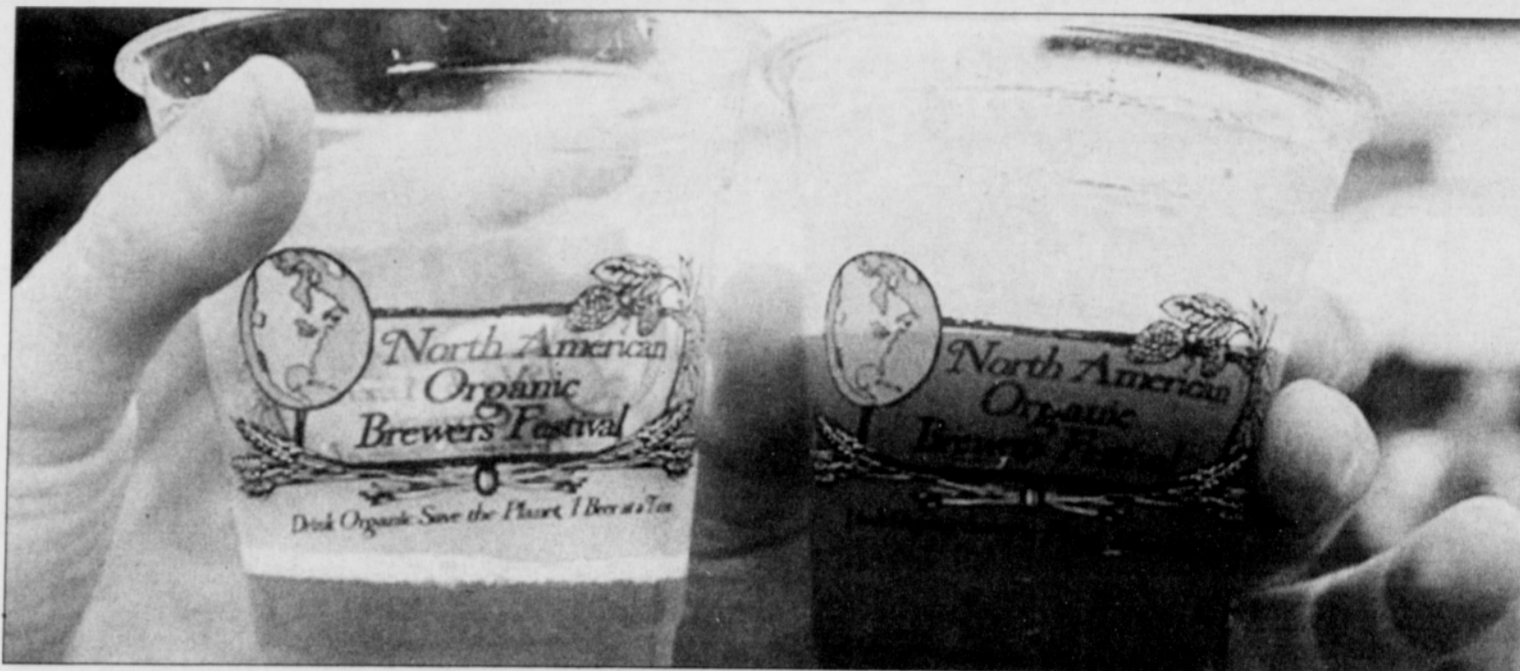 North American
Organic
Brewers' Festival
Drink Organic Save the Planet, 1 Beer at a Time
North American
Organic
Brewers' Festival